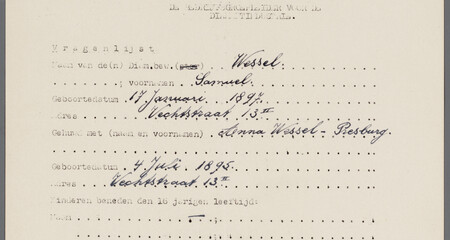 DE BEDRIJFSRECHERCHE VOOR DE
Vragenlijst
Naam van de(n) Diam.bew. Wessel.
; voornamen Samuel.
Geboortedatum 17 Januari 1897.
Adres Vechtstraat 13 II
Gehuwd met (naam en voornamen) Anna Wessel-Presburg.
Geboortedatum 4 Juli 1895.
Adres Vechtstraat 13 II
Kinderen beneden den 16 jarigen leeftijd:
Naam —